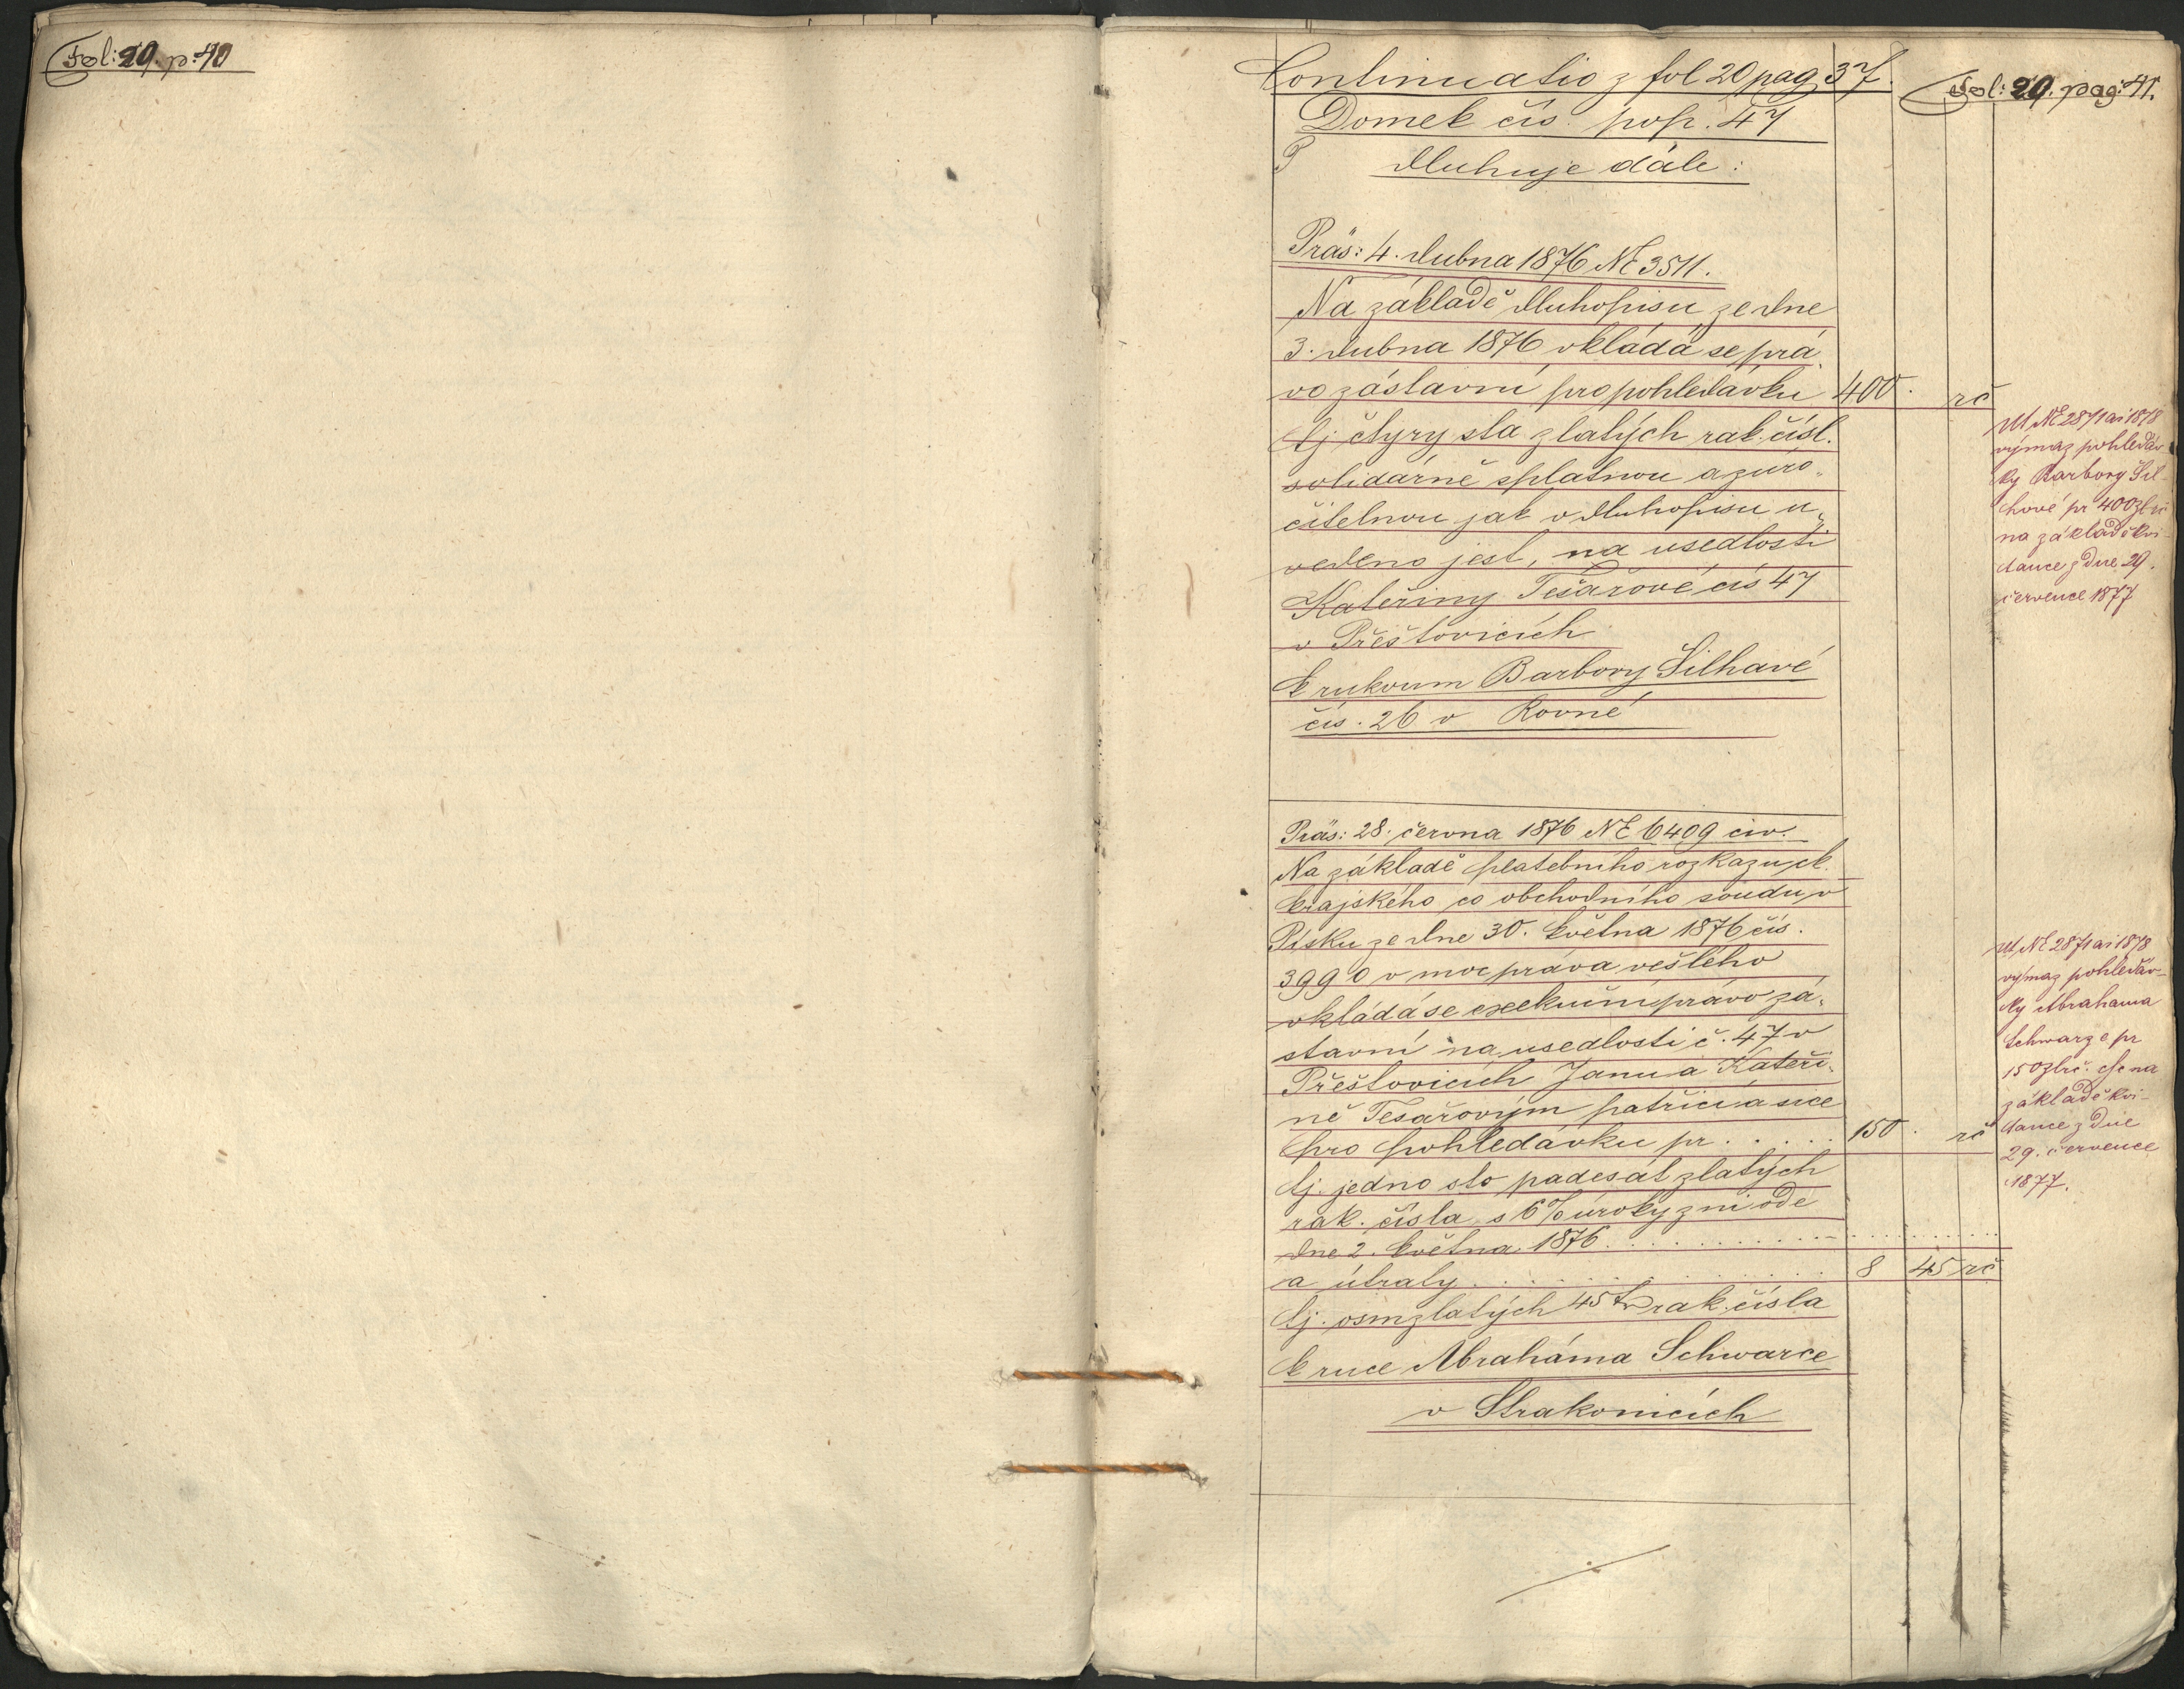 Fol: 20. p: 40
Continuatio z fol 20 pag 37.
Fol: 20. pag: 41.
Domek čís. pop. 47
dluhuje dále:
Präs: 4. dubna 1876 NE 3511.
Na základě dluhopisu ze dne
3. dubna 1876 vkládá se prá„
vo zástavní pro pohledávku 400 rč
tj čtyry sta zlatých rak. čísl.
solidárně splatnou a zúro„
čitelnou jak v dluhopisu u„
vedeno jest, na usedlosti
Kateřiny Tesařové čís 47
v Přešťovicích
k rukoum Barbory Šilhavé
čís. 26 v Rovné
Ut NE 2871 ai 1878
výmaz pohledáv-
ky Barbory Šil-
hové pr 400 zl rč
na základě kvi-
tance z dne 29.
července 1877
Präs: 28. června 1876 NE 6409 civ.
Na základě platebního rozkazu ck.
krajského co obchodního soudu v
Písku ze dne 30. května 1876 čís.
3990 v moc práva vešlého
vkládá se exekuční právo zá„
stavní na usedlosti č. 47 v
Přešťovicích Janu a Kateři„
ně Tesařovým patřící a sice
pro pohledávku pr . . . . . 150 . rč
tj. jedno sto padesát zlatých
rak. čísla s 6% úroky z ní ode
dne 2. května 1876 . . . . . . . . . .
a útraty . . . . . . . . . . 8 45 rč
tj. osm zlatých 45 kr rak. čísla
k ruce Abraháma Schwarce
v Strakonicích
Ut NE 2871 ai 1878
výmaz pohledáv-
ky Abrahama
Schwarze pr
150 zl rč. csc na
základě kvi-
tance z dne
29. července
1877.